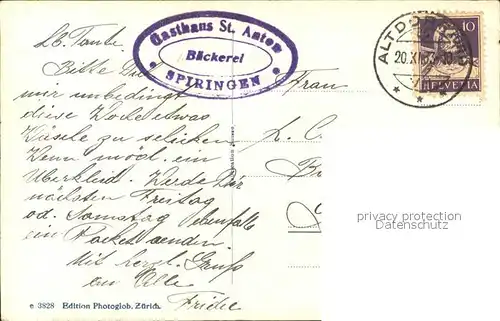 Gasthaus St. Anton
Bäckerei
SPIRINGEN
ALTDORF
20.X
10
HELVETIA
Lb. Tante.
Bitte Dich
mir unbedingt
diese Woche etwas
Wäsche zu schicken
Wenn mögl. ein
Überkleid. Werde Dir
nächsten Freitag
od. Samstag ebenfalls
ein Packet senden
Mit herzl. Gruß
an Alle
Fridie
Frau
L. C
privacy protection
Datenschutz
e 3828 Edition Photoglob, Zürich.